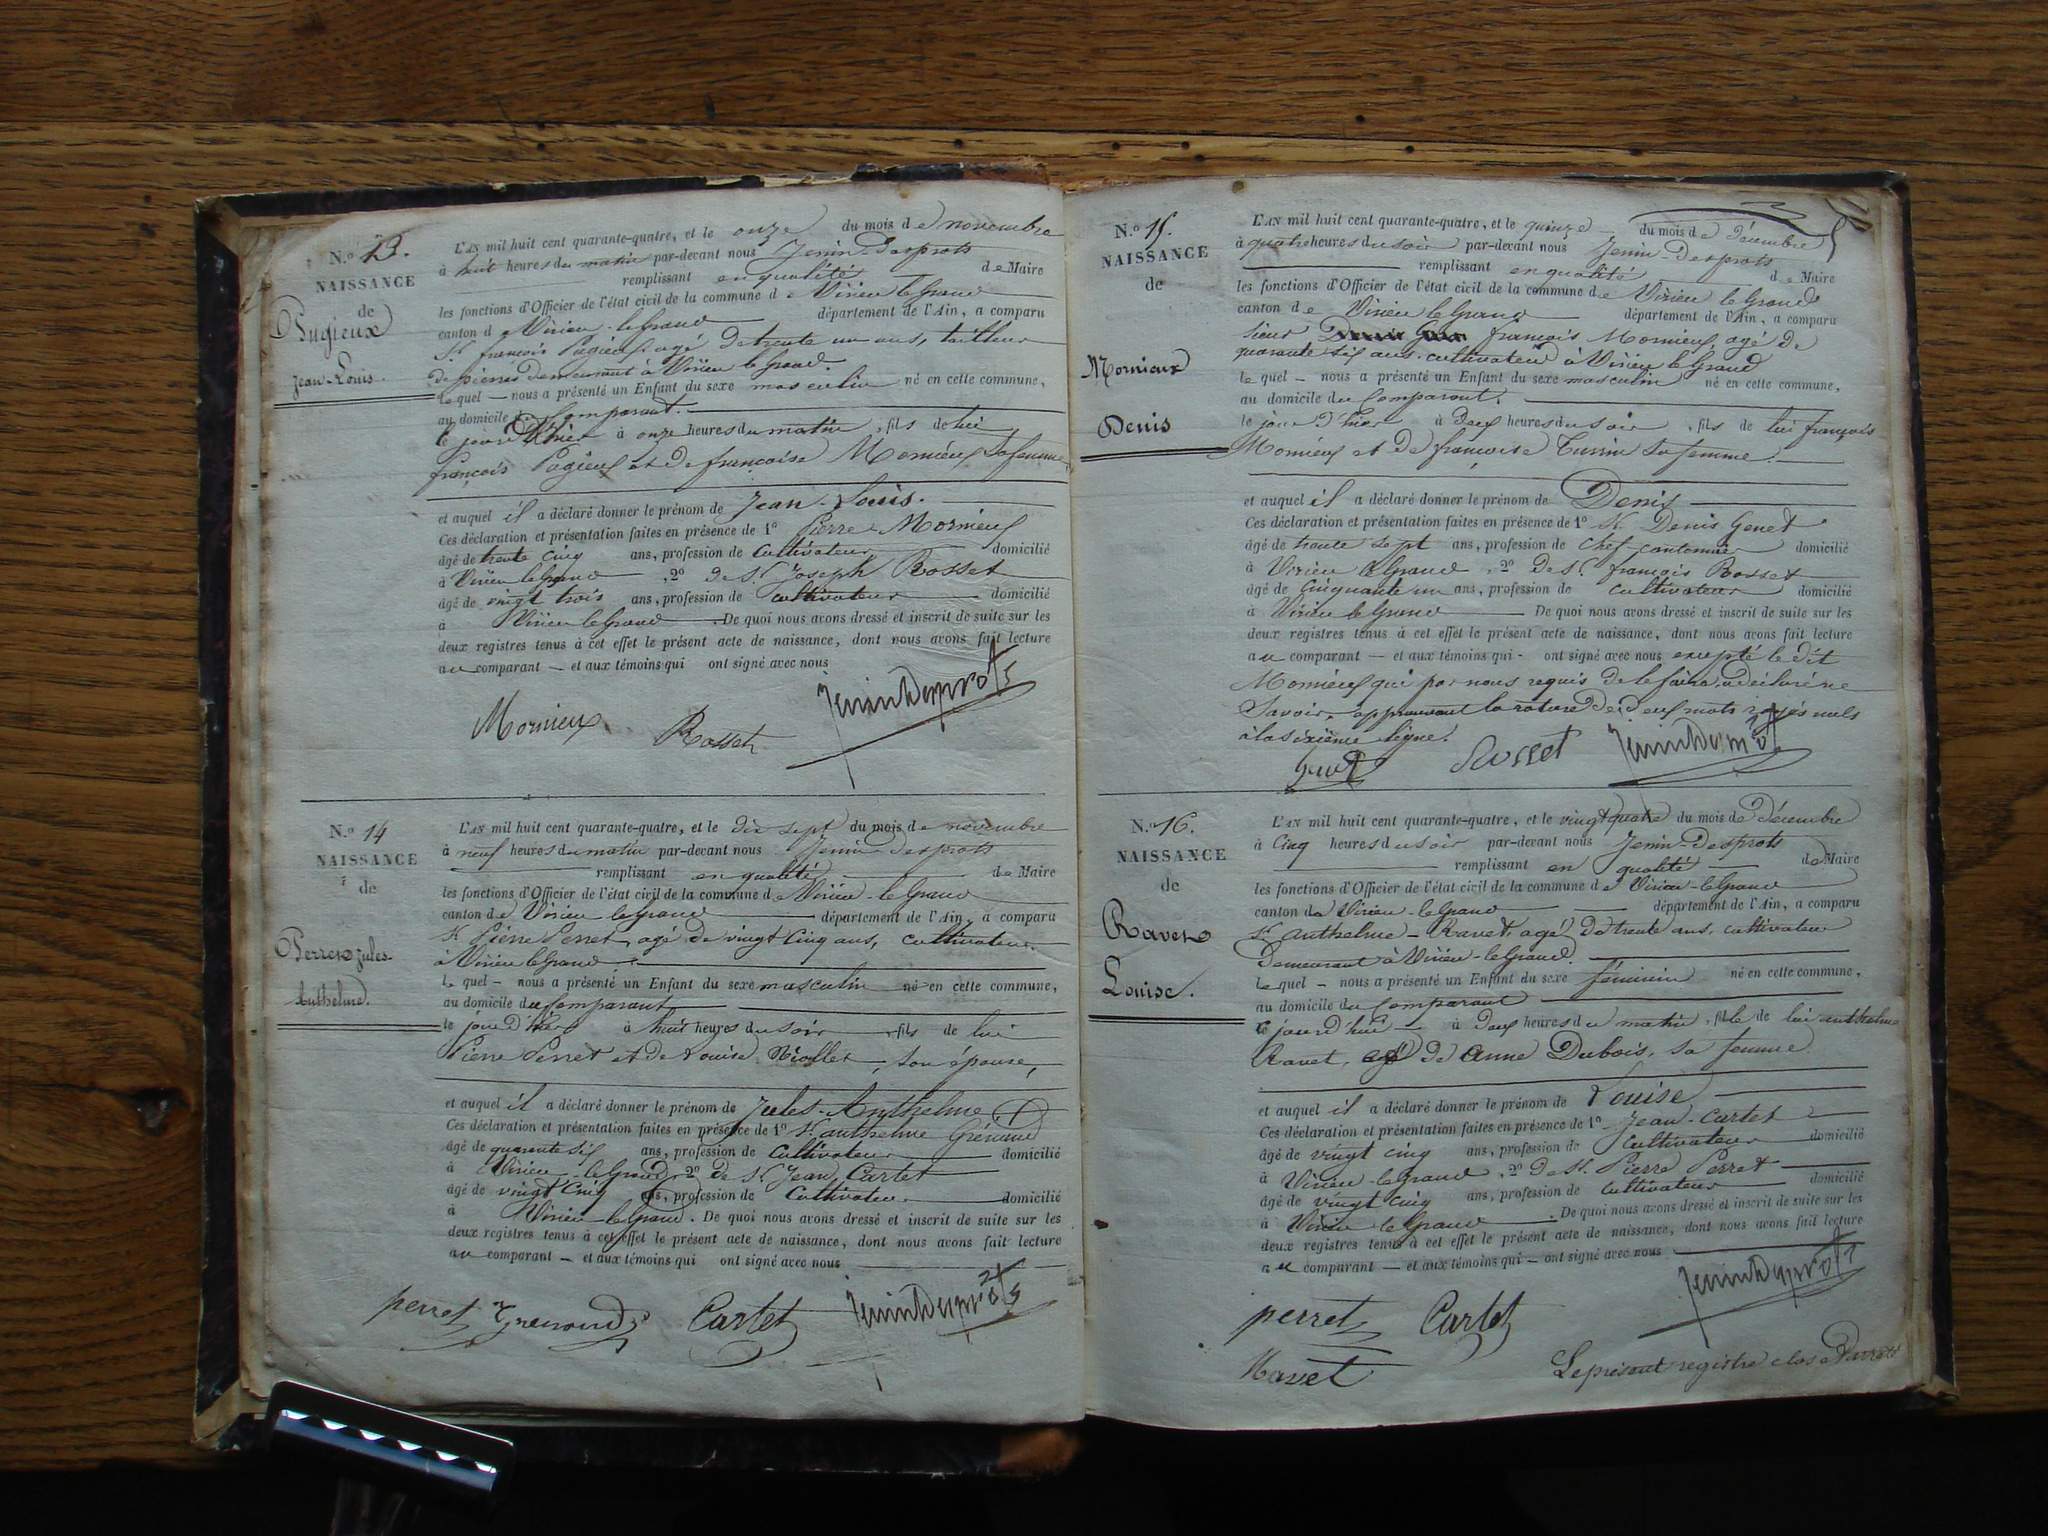 N.º 13.
NAISSANCE
de
Pugieux
Jean-Louis.
L'AN mil huit cent quarante-quatre, et le onze du mois de novembre
à huit heures du matin par-devant nous Jenin-Desprots
remplissant en qualité de Maire
les fonctions d'Officier de l'état civil de la commune de Virieu le Grand
canton de Virieu-le Grand département de l'Ain, a comparu
Sr. françois Pugieux agé de trente un ans, tailleur
de pierres demeurant à Virieu le Grand.
lequel — nous a présenté un Enfant du sexe masculin né en cette commune,
au domicile du Comparant.
le jour d'hier à onze heures du matin, fils de lui
françois Pugieux et de françoise Mornieux sa femme,
et auquel il a déclaré donner le prénom de Jean-Louis.
Ces déclaration et présentation faites en présence de 1º Pierre Mornieux
âgé de trente cinq ans, profession de Cultivateur domicilié
à Virieu le Grand, 2º de Sr. Joseph Rosset
âgé de vingt trois ans, profession de cultivateur domicilié
à Virieu le Grand. De quoi nous avons dressé et inscrit de suite sur les
deux registres tenus à cet effet le présent acte de naissance, dont nous avons fait lecture
au comparant — et aux témoins qui ont signé avec nous
Mornieux Rosset Jenin Desprots
N.º 14
NAISSANCE
de
Perret Jules-
Anthelme.
L'AN mil huit cent quarante-quatre, et le dix sept du mois de novembre
à neuf heures du matin par-devant nous Jenin Desprots
remplissant en qualité de Maire
les fonctions d'Officier de l'état civil de la commune de Virieu-le Grand
canton de Virieu le Grand département de l'Ain, a comparu
Sr. Pierre Perret, agé de vingt cinq ans, cultivateur
à Virieu le Grand.
lequel — nous a présenté un Enfant du sexe masculin né en cette commune,
au domicile du Comparant
le jour d'hier à huit heures du soir, fils de lui
Pierre Perret et de Louise Niollet, son épouse,
et auquel il a déclaré donner le prénom de Jules-Anthelme
Ces déclaration et présentation faites en présence de 1º Sr. anthelme Grenand
âgé de quarante six ans, profession de Cultivateur domicilié
à Virieu le Grand, 2º de Sr. Jean Cartet
âgé de vingt cinq ans, profession de Cultivateur domicilié
à Virieu-le Grand. De quoi nous avons dressé et inscrit de suite sur les
deux registres tenus à cet effet le présent acte de naissance, dont nous avons fait lecture
au comparant — et aux témoins qui ont signé avec nous
perret Cartet Jenin Desprots
N.º 15.
NAISSANCE
de
Mornieux
Denis
L'AN mil huit cent quarante-quatre, et le quinze du mois de décembre
à quatre heures du soir par-devant nous Jenin-Desprots
remplissant en qualité de Maire
les fonctions d'Officier de l'état civil de la commune de Virieu le Grand
canton de Virieu le Grand département de l'Ain, a comparu
sieur françois Mornieux, agé de
quarante six ans, cultivateur à Virieu le Grand
lequel — nous a présenté un Enfant du sexe masculin né en cette commune,
au domicile du Comparant.
le jour d'hier à deux heures du soir, fils de lui françois
Mornieux et de françoise sa femme.
et auquel il a déclaré donner le prénom de Denis
Ces déclaration et présentation faites en présence de 1º Sr. Denis Genet
âgé de trente sept ans, profession de chef cantonnier domicilié
à Virieu le Grand, 2º de Sr. françois Rosset
âgé de Cinquante un ans, profession de cultivateur domicilié
à Virieu le Grand De quoi nous avons dressé et inscrit de suite sur les
deux registres tenus à cet effet le présent acte de naissance, dont nous avons fait lecture
au comparant — et aux témoins qui - ont signé avec nous excepté le dit
Mornieux qui par nous requis de le faire a déclaré ne
Savoir, approuvant la rature de deux mots rayés nuls
à la sixième ligne.
Genet Rosset Jenin Desprots
N.º 16.
NAISSANCE
de
Ravet
Louise.
L'AN mil huit cent quarante-quatre, et le vingt quatre du mois de décembre
à Cinq heures du soir par-devant nous Jenin-Desprots
remplissant en qualité de Maire
les fonctions d'Officier de l'état civil de la commune de Virieu-le Grand
canton de Virieu-le Grand département de l'Ain, a comparu
Sr. anthelme-Ravet, agé de trente ans, cultivateur
demeurant à Virieu-le Grand.
lequel — nous a présenté un Enfant du sexe féminin né en cette commune,
au domicile du Comparant
le jour d'hui à deux heures du matin, fille de lui anthelme
Ravet, et de Anne Dubois, sa femme.
et auquel il a déclaré donner le prénom de Louise
Ces déclaration et présentation faites en présence de 1º Jean-Cartet
âgé de vingt cinq ans, profession de Cultivateur domicilié
à Virieu-le Grand, 2º de Sr. Pierre Perret
âgé de vingt cinq ans, profession de cultivateur domicilié
à Virieu le Grand. De quoi nous avons dressé et inscrit de suite sur les
deux registres tenus à cet effet le présent acte de naissance, dont nous avons fait lecture
au comparant — et aux témoins qui — ont signé avec nous
perret Cartet Jenin Desprots
Ravet
Le présent registre clos